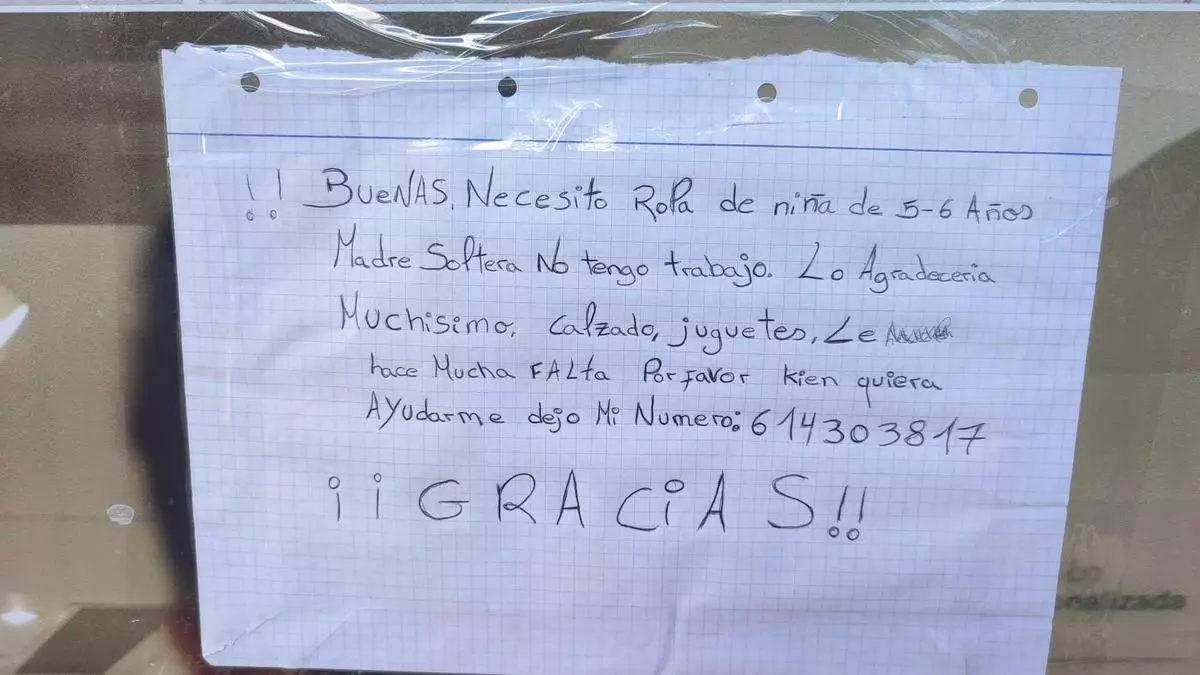 !! BUENAS, Necesito ROPA de niña de 5-6 Años
Madre Soltera No tengo trabajo. Lo Agradeceria
Muchisimo, Calzado, juguetes, Le
hace Mucha FALta Por favor kien quiera
AYudarme dejo Mi Numero: 614303817
¡¡GRACiAS!!
nalizada